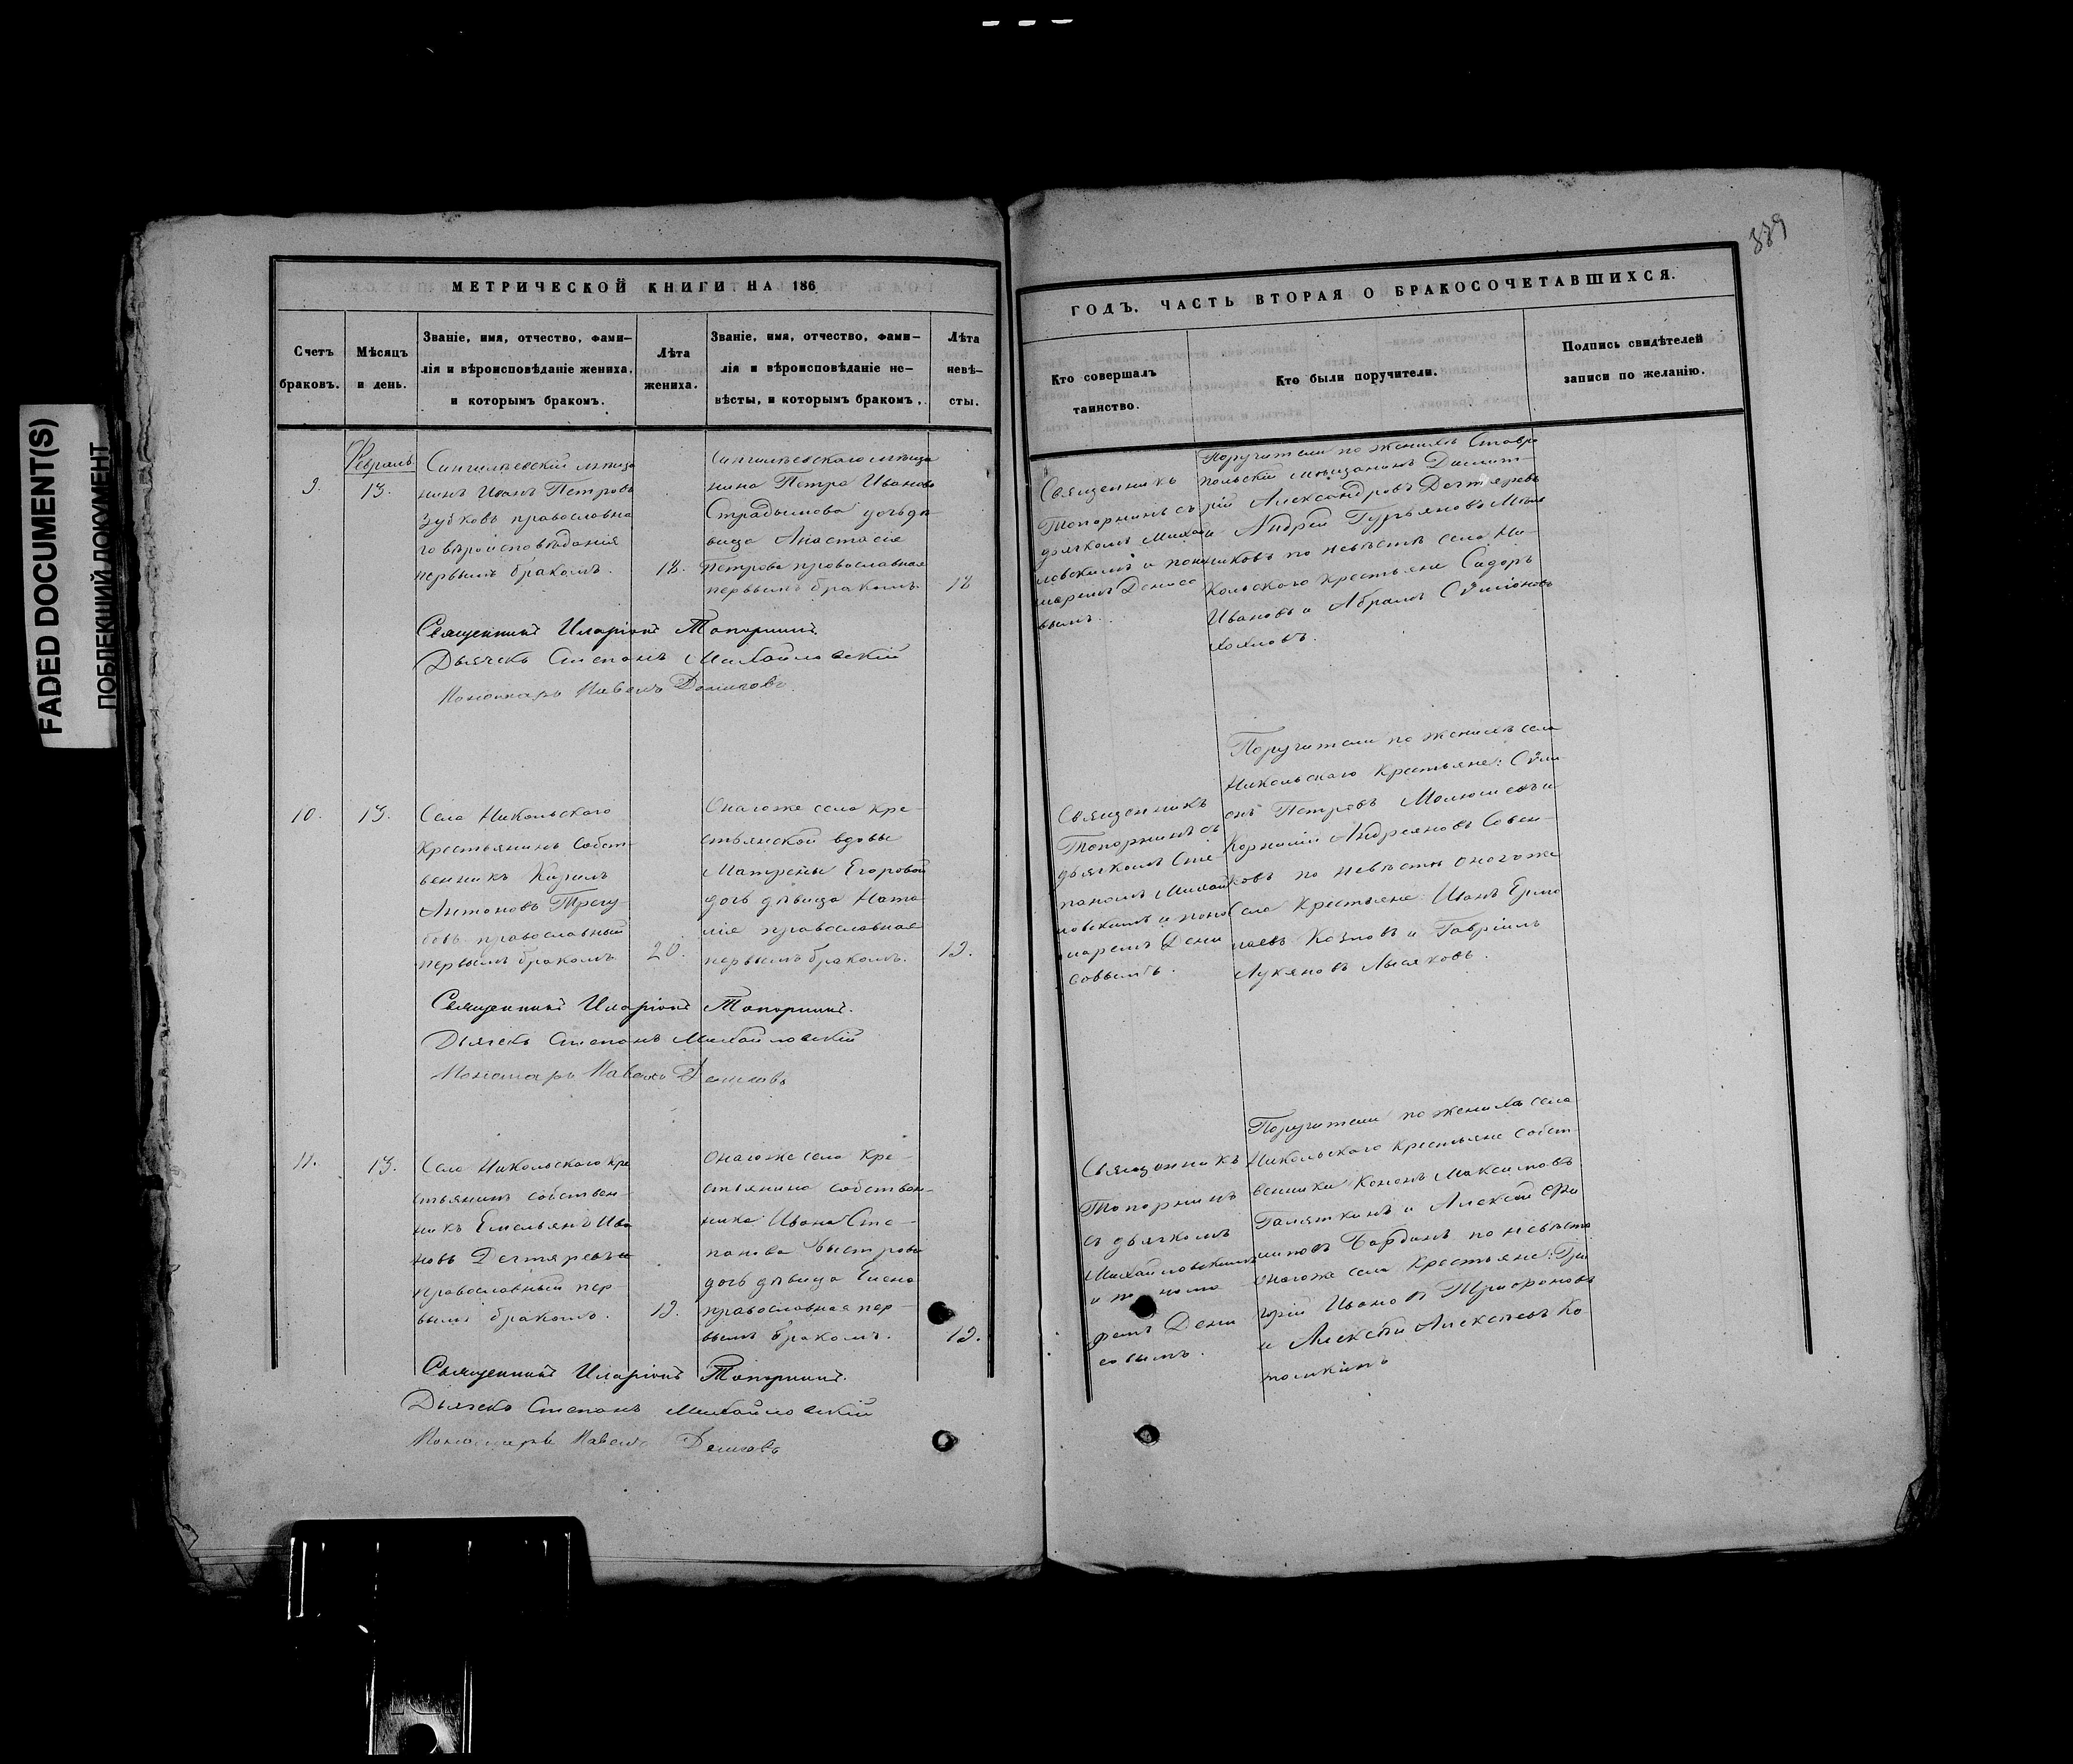 339
FADED DOCUMENT(S)
ПОБЛЕКШИЙ ДОКУМЕНТ
МЕТРИЧЕСКОЙ КНИГИ НА 186
Счетъ
браковъ.
Мѣсяцъ
и день.
Званіе, имя, отчество, фами-
лія и вѣроисповѣданіе жениха,
и которымъ бракомъ.
Лѣта
жениха.
Званіе, имя, отчество, фами-
лія и вѣроисповѣданіе не-
вѣсты, и которымъ бракомъ.
Лѣта
невѣ-
сты.
ГОДЪ, ЧАСТЬ ВТОРАЯ О БРАКОСОЧЕТАВШИХСЯ.
Кто совершалъ
таинство.
Кто были поручители.
Подпись свидѣтелей
записи по желанію.
Февраль
9.
13.
Сингилѣевскій мѣща
нинъ Иванъ Петровъ
Зубковъ православна
го вѣроисповѣданія
первымъ бракомъ.
18.
Сингилѣевскаго мѣща
нина Петра Иванова
дочь дѣ
вица Анастасія
Петрова православная
первымъ бракомъ.
18
Священникъ
Топорнинъ съ
дьячкомъ Михай
ловскимъ и поно
маремъ Денисо
вымъ.
Поручители по женихѣ Ставро
польскій мѣщанинъ Димит-
рій Александровъ Дегтяревъ
и Андрей Гурьяновъ
по невѣстѣ села Ни-
кольскаго крестьяне Сидоръ
Ивановъ и Абрамъ Сѵміоновъ
Священникъ Иларіонъ Топорнинъ.
Дьячекъ Степанъ Михайловскій
Пономарь Павелъ Денисовъ.
10.
13.
Села Никольскаго
крестьянинъ собст-
венникъ Кирилъ
Антоновъ Трегу
бовъ православный
первымъ бракомъ
20.
Онагоже села кре-
стьянской вдовы
Матрены Егоровой
дочь дѣвица Ната
лія православная
первымъ бракомъ.
19.
Священникъ
Топорнинъ съ
дьячкомъ Сте-
паномъ Михай
ловскимъ и поно
маремъ Дени
совымъ.
Поручители по женихѣ села
Никольскаго крестьяне: Сѵми
онъ Петровъ и
Корнилій Андреяновъ
по невѣстѣ оногоже
села крестьяне: Иванъ Ермо
лаевъ Козловъ и Гавріилъ
Лукяновъ Лысяковъ.
Священникъ Иларіонъ Топорнинъ.
Дьячекъ Степанъ Михайловскій
Пономарь Павелъ Денисовъ
11.
13.
Села Никольскаго кре
стьянинъ собствен-
никъ Емельянъ Ива
новъ Дегтяревъ
православный пер-
вымъ бракомъ.
19.
Онагоже села кре-
стьянина собствен-
ника Ивана Сте-
панова Быстрова
дочь дѣвица Елена
православная пер-
вымъ бракомъ.
19.
Священникъ
Топорнинъ
съ дьячкомъ
Михайловскимъ
и понома
ремъ Дени
совымъ.
Поручители по женихѣ села
Никольскаго крестьяне собст-
венники Кононъ Максимовъ
Галяткинъ и Алексѣй Фи
липовъ по невѣстѣ
оногоже села крестьяне: Гри
горій Ивановъ Трифоновъ
и Алексѣй Алексѣевъ Ко
толкинъ
Священникъ Иларіонъ Топорнинъ.
Дьячекъ Степанъ Михайловскій
Пономарь Павелъ Денисовъ